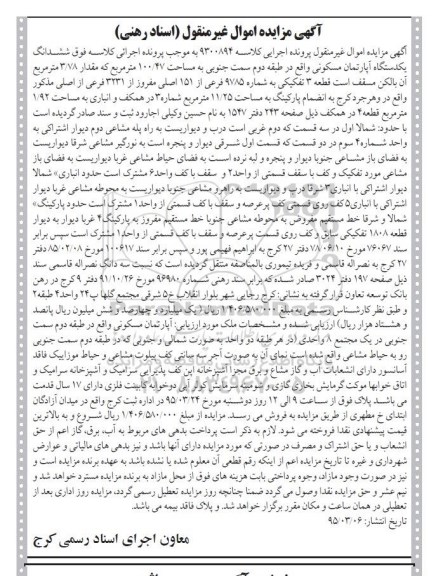 آگهی مزایده اموال غیرمنقول (اسناد رهنی)
آگهی مزایده اموال غیرمنقول پرونده اجرایی کلاسه ۹۳۰۰۸۹۴ به موجب پرونده اجرائی کلاسه فوق ششدانگ
یکدستگاه آپارتمان مسکونی واقع در طبقه دوم سمت جنوبی به مساحت ۱۰۰/۴۷ مترمربع که مقدار ۳/۷۸ مترمربع
آن بالکن مسقف است قطعه ۳ تفکیکی به شماره ۹۷۸۵ فرعی از ۱۵۱ اصلی مفروز از ۳۲۳۱ فرعی از اصلی مذکور
واقع در وهرجرد کرج به انضمام پارکینگ به مساحت ۱۱/۲۵ مترمربع شماره ۳ در همکف و انباری به مساحت ۱/۹۲
مترمربع قطعه ۴ در همکف ذیل صفحه ۲۴۳ دفتر ۱۵۴۷ به نام حسین وکیلی اجارود ثبت و سند صادر گردیده است
با حدود: شمالا اول در سه قسمت که دوم غربی است درب و دیواریست به راه پله مشاعی دوم دیوار اشتراکی به
واحد شماره ۴ سوم در دو قسمت که قسمت اول شرقی دیوار و پنجره است به نورگیر مشاعی شرقا دیواریست
به فضای باز مشاعی جنوبا دیوار و پنجره و لبه نرده است به فضای حیاط مشاعی غربا دیواریست به فضای باز
مشاعی مورد تفکیک و کف با سقف قسمتی از واحد ۲ و سقف با کف واحد ۶ مشترک است حدود انباری» شمالا
دیوار اشتراکی با انباری ۳ شرقا درب و دیواریست به راهرو مشاعی جنوبا دیواریست به محوطه مشاعی غربا دیوار
اشتراکی با انباری ۵ کف روی قسمتی کف پرعرصه و سقف با کف قسمتی از واحد ۱ مشترک است حدود پارکینگ»
شمالا و شرقا خط مستقیم مفروض به محوطه مشاعی جنوبا خط مستقیم مفروز به پارکینگ ۴ غربا دیوار به دیوار
قطعه ۱۸۰۸ تفکیکی سابق و کف روی قسمت پرعرصه و سقف با کف قسمتی از واحد ۱ مشترک است سپس برابر
سند ۷۶۰۶۷ مورخ ۷۸/۰۶/۱۰ دفتر ۲۷ کرج به ابراهیم فهیمی پور و سپس برابر سند ۱۰۰۶۱۷ مورخ ۸۵/۰۲/۰۸ دفتر
۲۷ کرج به نصراله قاسمی و فریده تیموری بالمناصفه منتقل گردیده است که نسبت سه دانگ نصراله قاسمی سند
ذیل صفحه ۱۹۷ دفتر ۳۰۲۴ صادر شده که برابر سند رهنی شماره ۹۶۹۸۰ مورخ ۹۱/۱۰/۲۶ دفتر ۹ کرج در رهن
بانک توسعه تعاون قرار گرفته به نشانی: کرج رجایی شهر بلوار انقلاب خ ۵ شرقی مجتمع گلها پ ۲۴ واحد ۴ طبقه ۲
و طبق نظر کارشناس رسمی به مبلغ ۱/۴۰۶/۵۸۰/۰۰۰ ریال (یک میلیارد و چهارصد و شش میلیون ریال پانصد
و هشتاد هزار ریال) ارزیابی شده و مشخصات ملک مورد ارزیابی: آپارتمان مسکونی واقع در طبقه دوم سمت
جنوبی در یک مجتمع ۸ واحدی (در هر طبقه دو واحد به صورت شمالی و جنوبی) که در طبقه دوم سمت جنوبی
رو به حیاط مشاعی واقع شده است نمای آن به صورت آجر سه سانتی کف پیلوت مشاعی و حیاط موزاییک فاقد
آسانسور دارای انشعابات آب و گاز مشاع و برق مجزا آشپزخانه این کف پذیرایی سرامیک و آشپزخانه سرامیک و
اتاق خوابها موکت گرمایش بخاری گازی و شومینه سرمایش کولر آبی دوخوابه کابینت فلزی دارای ۱۷ سال قدمت
می باشند پلاک فوق از ساعت ۹ الی ۱۲ روز دوشنبه مورخ ۹۵/۰۳/۲۴ در اداره ثبت کرج واقع در میدان آزادگان
ابتدای خ مطهری از طریق مزایده به فروش می رسد. مزایده از مبلغ ۱/۴۰۶/۵۸۰/۰۰۰ ریال شروع و به بالاترین
قیمت پیشنهادی نقدا فروخته می شود. لازم به ذکر است پرداخت بدهی های مربوط به آب، برق، گاز اعم از حق
انشعاب و یا حق اشتراک و مصرف در صورتی که مورد مزایده دارای آنها باشد و نیز بدهی های مالیاتی و عوارض
شهرداری و غیره تا تاریخ مزایده اعم از اینکه رقم قطعی آن معلوم شده یا نشده باشد به عهده برنده مزایده است و
نیز در صورت وجود مازاد، وجوه پرداختی بابت هزینه های فوق از محل مازاد به برنده مزایده مسترد خواهد شد و
نیم عشر و حق مزایده نقدا وصول می گردد ضمنا چنانچه روز مزایده تعطیل رسمی گردد، مزایده روز اداری بعد از
تعطیلی در همان ساعت و مکان مقرر برگزار خواهد شد. و پلاک فاقد بیمه می باشد.
تاریخ انتشار: ۹۵/۰۳/۰۶
معاون اجرای اسناد رسمی کرج